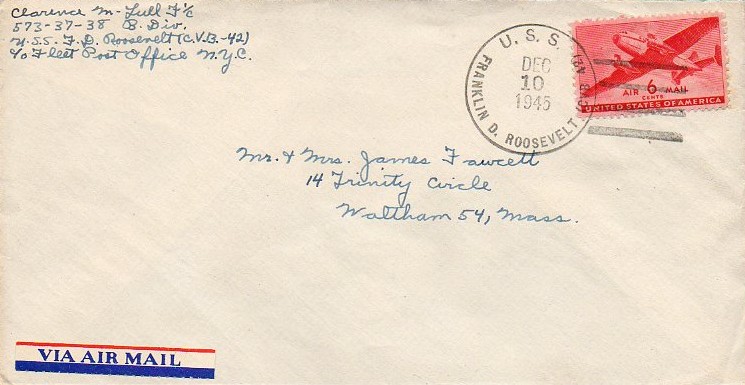 Clarence M. Tull F 1/c
573-37-38 B. Div.
U.S.S. F.D. Roosevelt (C.V.B.-42)
c/o Fleet Post Office N.Y.C.
U. S. S.
FRANKLIN D. ROOSEVELT (CVB 42)
DEC
10
1945
AIR 6 MAIL
CENTS
UNITED STATES OF AMERICA
Mr. & Mrs. James Fawcett
14 Trinity Circle
Waltham 54, Mass.
VIA AIR MAIL